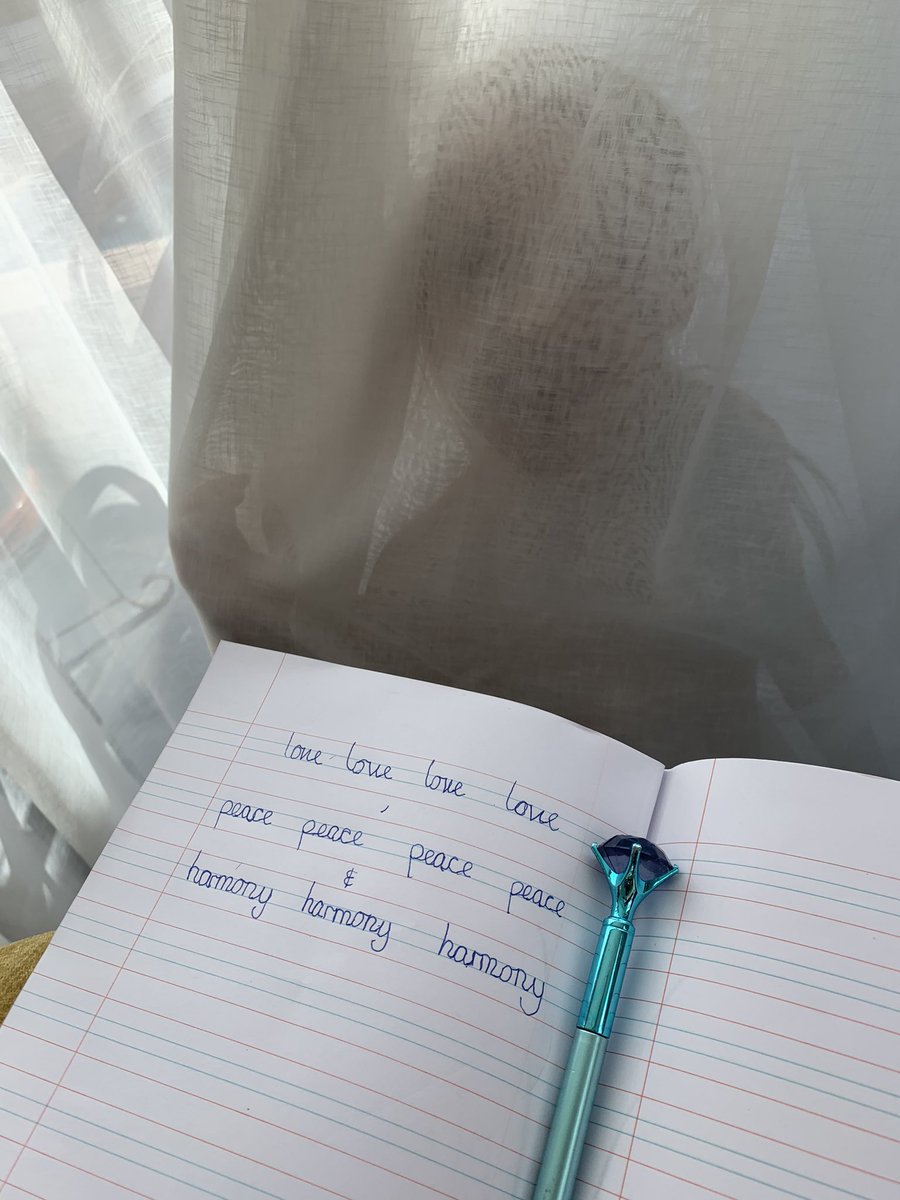 love love love love
,
peace peace peace peace
&
harmony harmony harmony